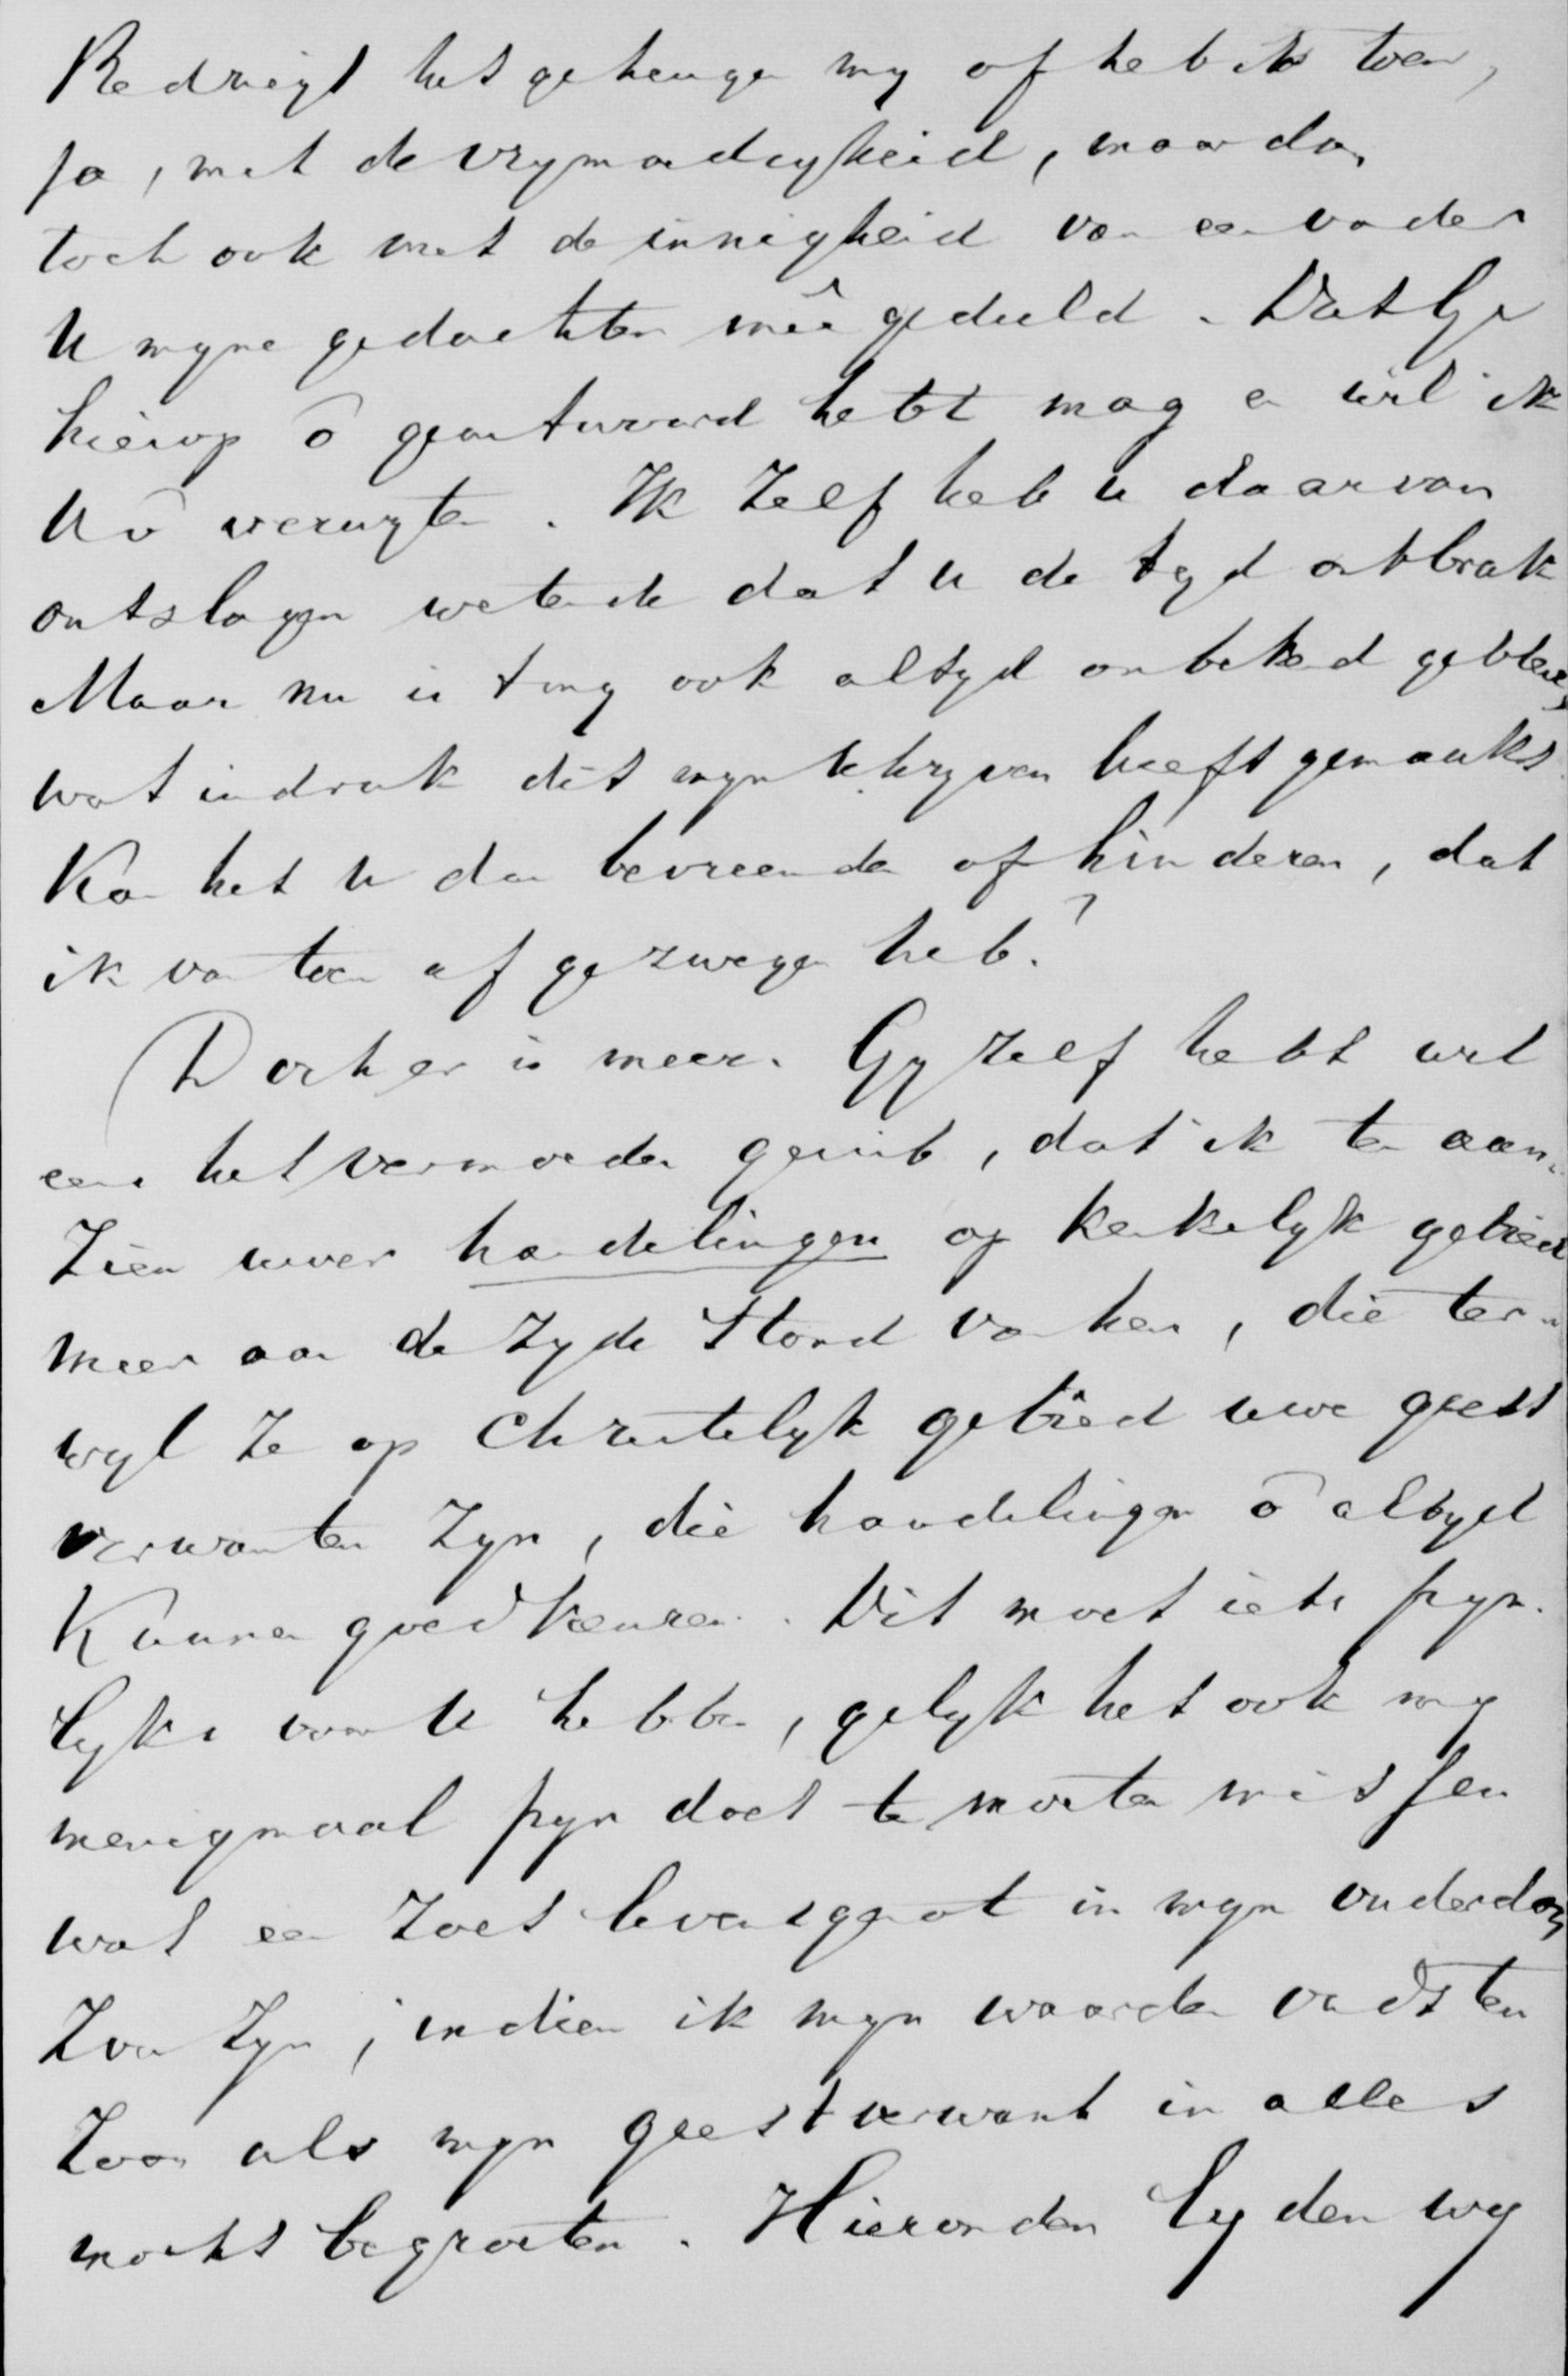 Bedriegt het geheugen my of heb ik toen,
ja, met de vrymoedigheid, maar dan
toch ook met de innigheid van een vader
U myne gedachten meê gedeeld. Dat Gy
hierop ō geantwoord hebt mag en wil ik
U ō verwyten. Ik zelf heb u daarvan
ontslagen wetende dat u de tyd ontbrak
Maar nu is 't my ook altyd onbekend gebleven
wat indruk dit myn schryven heeft gemaakt
Kan het U dan bevreemden of hinderen, dat
ik van toen af gezwegen heb?
Doch er is meer. Gy zelf hebt wel
eens het vermoeden geuit, dat ik ten aan-
zien uwer handelingen op kerkelyk gebied
meer aan de zyde stond van hen, die ter-
wyl ze op Christelyk gebied uwe geest
verwanten zyn, die handelingen ō altyd
kunnen goedkeuren. Dit moet iets pyn-
lyks voor U hebben, gelyk het ook my
menigmaal pyn doet te moeten missen
wat een zoet levensgenot in myn ouderdom
zou zyn, indien ik myn waarden oudsten
zoon als myn geestverwant in alles
mocht begroeten. Hieronder lyden wy